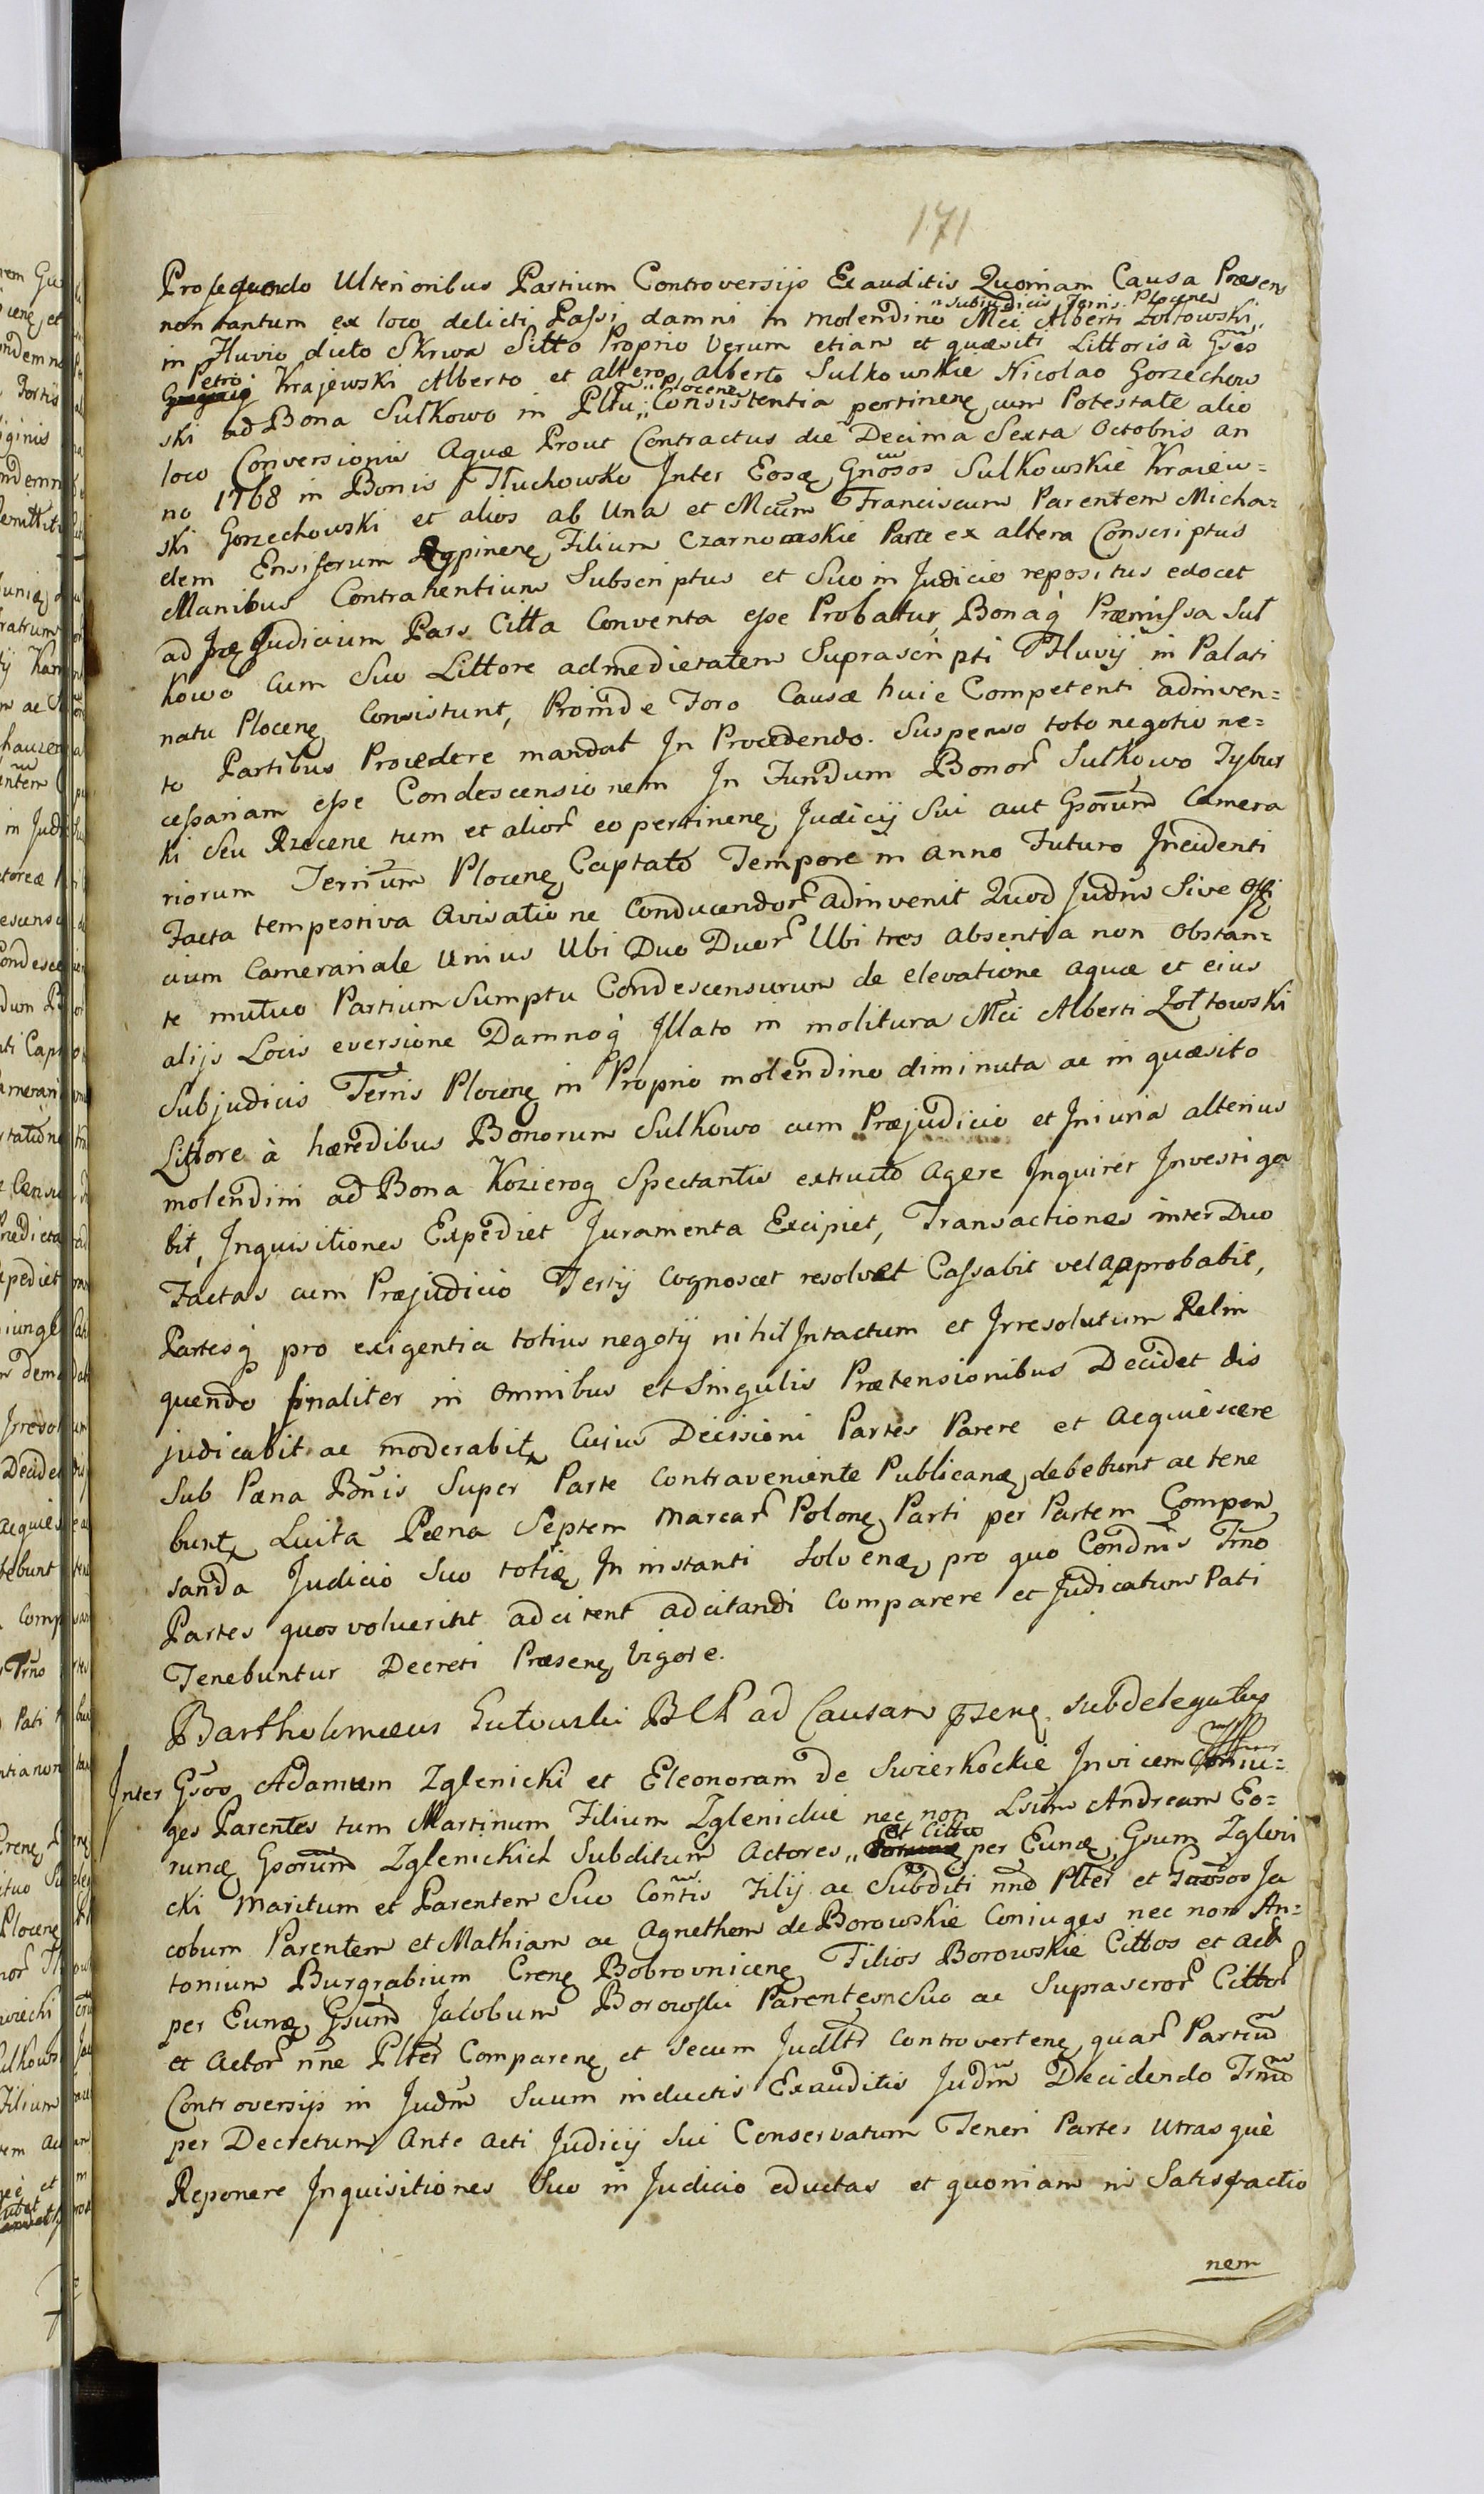 171
Prosequendo Ulterioribus Partium Controversijs Exauditis Quoniam Causa Præsens
non tantum ex loco delicti Passi damni in molendino "subjudicis Terris Plocene͜ Mci Alberti Zołtowski,
in Fluvio dicto Skrwa Sitto Proprio Verum etiam et quæsiti Littoris à Gsis
Petro Krajewski Alberto et altero Alberto Sulkowskie Nicolao Gorzechow
ski ad Bona Sulkowo in Pltu "Plocene͜ Consistentia pertinene͜ cum Potestate alio
loco Conversionis Aquæ Prout Contractus die Decima Sexta Octobris an
no 1768 in Bonis Tłuchowko Inter Eosæ Gnosos Sulkowskie Kraiew=
ski Gorzechowski et alios ab Una et Mcum Franciscum Parentem Micha=
elem Ensiferum Rypinene͜ Filium Czarnomskie Parte ex altera Conscriptus
Manibus Contrahentium Subscriptus et Suo in Judicio repositus edocet
ad Præjudicium Pars Citta Conventa esse Probatur, Bonaq̀ Præmissa Sul
kowo Cum Suo Littore ad medietatem Suprascripti Fluvij in Palati
natu Plocene͜ Consistunt, Proinde Foro Causæ huic Competenti adinven=
to Partibus Procedere mandat In Procedendo. Suspenso toto negotio ne=
cessariam esse Condescensionem In Fundum Bonor Sulkowo Zybur
ki seu Rzecene tum et alior eo pertinene͜ Judicij Sui aut Gsorum Camera
riorum Terrium Plocene͜ Captato Tempore in Anno Futuro Incidenti
Facta tempestiva Avisatione Conducendor adinvenit Quod Judm Sive Offi
cium Camerariale Unius Ubi Duo Duor Ubi tres absentia non Obstan=
te mutuo Partium Sumptu Condescensurum de elevatione aquæ et eius
alijs Locis eversione Damnoq̀ Illato in molitura Mci Alberti Zołtowski
Subjudicis Terris Plocene͜ in Proprio molendino diminuta ac in quæsito
Littore à hæredibus Bonorum Sulkowo cum Præjudicio et Iniuria alterius
molendini ad Bona Kozierog Spectantis extructo Agere Inquiret Investiga
bit, Inquisitiones Expediet Juramenta Excipiet, Transactiones inter Duo
Factas cum Præjudicio Tertij Cognoscet resolvet Cassabit vel Approbabit,
Partesq̀ pro exigentia totius negotij nihil Intactum et Irresolutum Relin
quendo finaliter in Omnibus et Singulis Prætensionibus Decidet dis
judicabit ac moderabit, Cujus Decisioni Partes Parere et Acquiescere
Sub Pæna Bnis Super Parte Contraveniente Publicanæ debebunt ac tene
bunt, Luita Pæna Septem Marcar Polone͜ Parti per Partem Compen
sanda Judicio Suo totiæ In instanti Solvenæ, pro quo Condnis Trno
Partes quos voluerint adcitent adcitandi Comparere et Judicatum Pati
Tenebuntur Decreti Præsene͜ Vigore.
Bartholomæus Gutowski B C P ad Causam pzene͜ subdelegatus
Inter Gsos Adamum Zglenicki et Eleonoram de Swierkockie Invicem Coniu=
ges Parentes tum Martinum Filium Zglenickie nec non Lsum Andream Eo=
runæ Gsorum Zglenickich Subditum Actores "et Cittos per Eunæ Gsum Zgleni
cki Maritum et Parentem Suo Contis Filij ac Subditi nno Plter et Gsos Ja
cobum Parentem et Mathiam ac Agnethem de Borowskie Coniuges nec non An=
tonium Burgrabium Crene͜ Bobrovnicene͜ Filios Borowskie Cittos et Act
per Eunæ Gsum Jacobum Borowski Parentem Suo ac Suprascror Cittor
et Actor nne Plter Comparene͜ et Secum Judltr Controvertene͜ quar Partium
Controversijs in Judm Suum inductis Exauditis Judm Decidendo Trno
per Decretum Ante Acti Judicij Sui Conservatum Teneri Partes Utrasquè
Reponere Inquisitiones Suo in Judicio eductas et quoniam in Satisfactio
nem